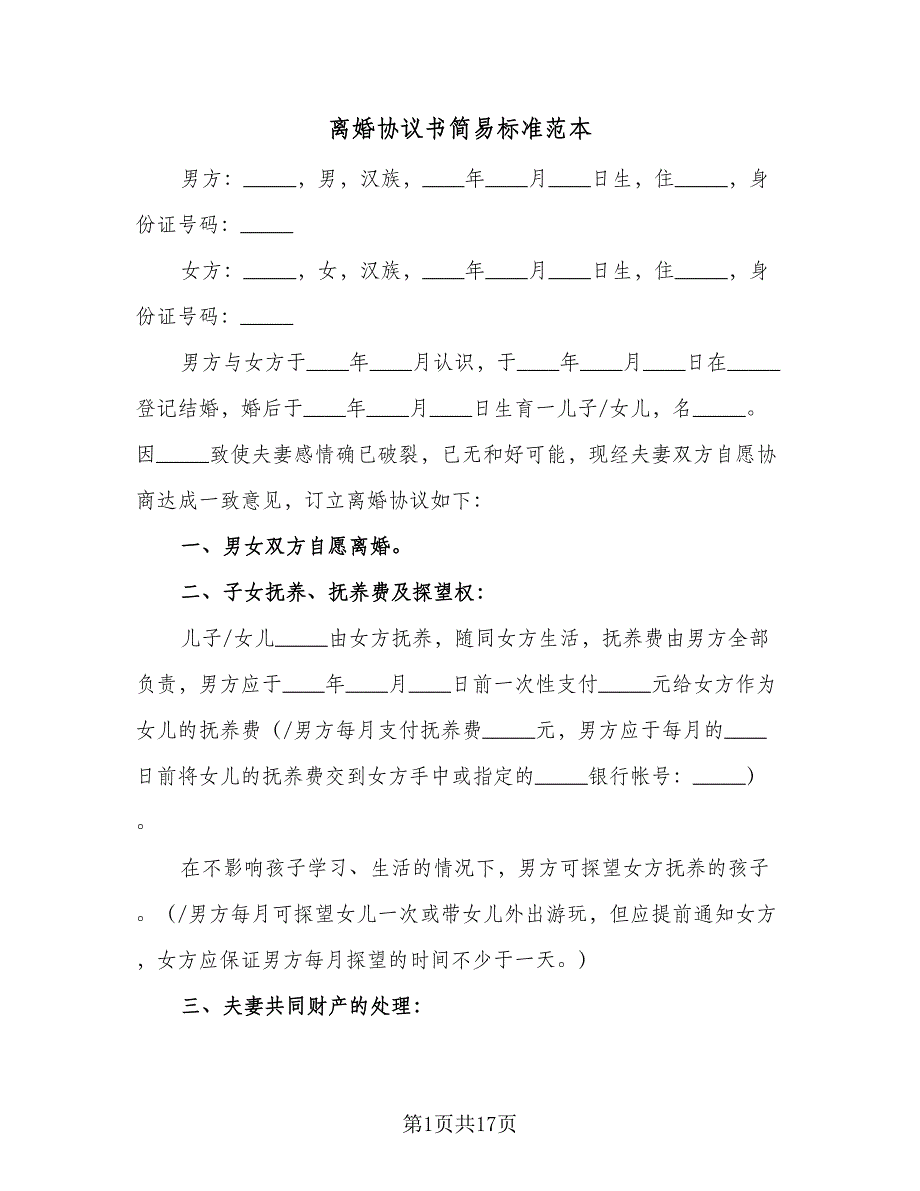 离婚协议书简易标准范本
男方：_____，男，汉族，____年____月____日生，住_____，身
份证号码：_____
女方：_____，女，汉族，____年____月____日生，住_____，身
份证号码：_____
男方与女方于____年____月认识，于____年____月____日在_____
登记结婚，婚后于____年____月____日生育一儿子/女儿，名_____。
因_____致使夫妻感情确已破裂，已无和好可能，现经夫妻双方自愿协
商达成一致意见，订立离婚协议如下：
一、男女双方自愿离婚。
二、子女抚养、抚养费及探望权：
儿子/女儿_____由女方抚养，随同女方生活，抚养费由男方全部
负责，男方应于____年____月____日前一次性支付_____元给女方作为
女儿的抚养费（/男方每月支付抚养费_____元，男方应于每月的____
日前将女儿的抚养费交到女方手中或指定的_____银行帐号：_____）
。
在不影响孩子学习、生活的情况下，男方可探望女方抚养的孩子
。（/男方每月可探望女儿一次或带女儿外出游玩，但应提前通知女方
，女方应保证男方每月探望的时间不少于一天。）
三、夫妻共同财产的处理：
第1页共17页